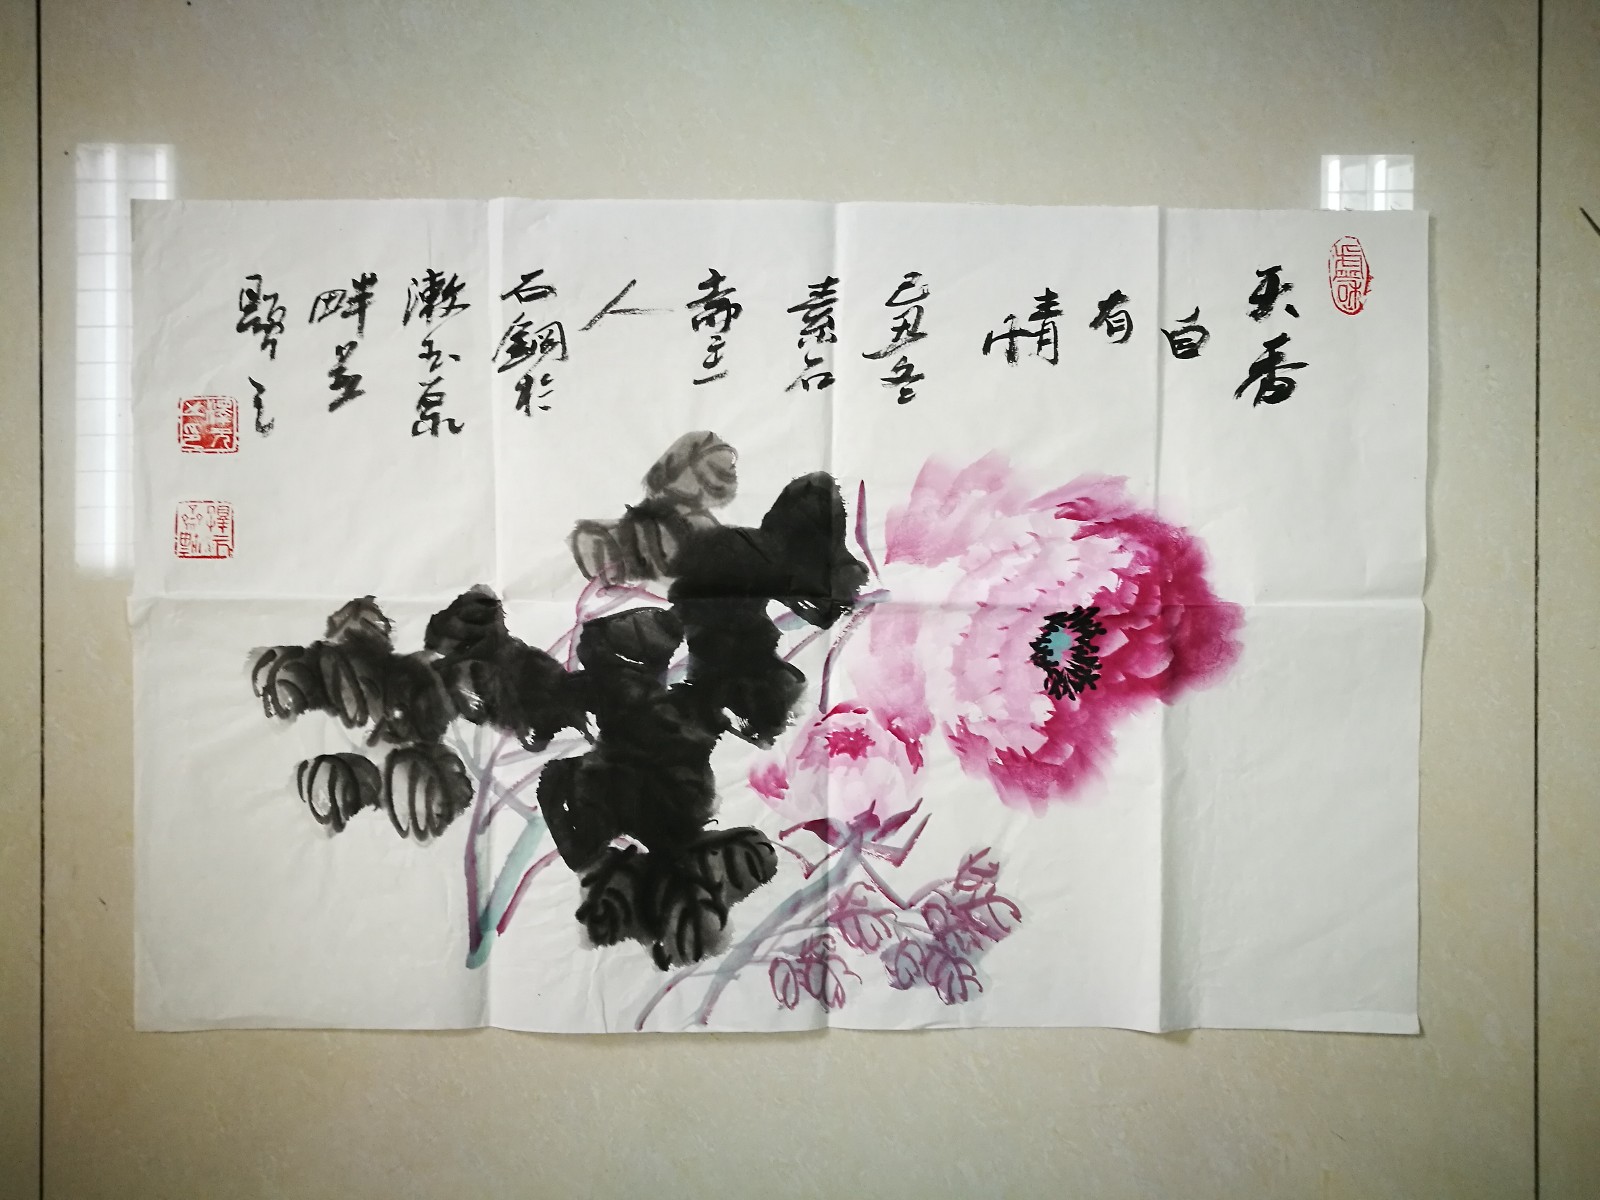 天香
自
有
情
己丑冬
素石
斋主
人
石钢於
漱玉泉
畔並
题之